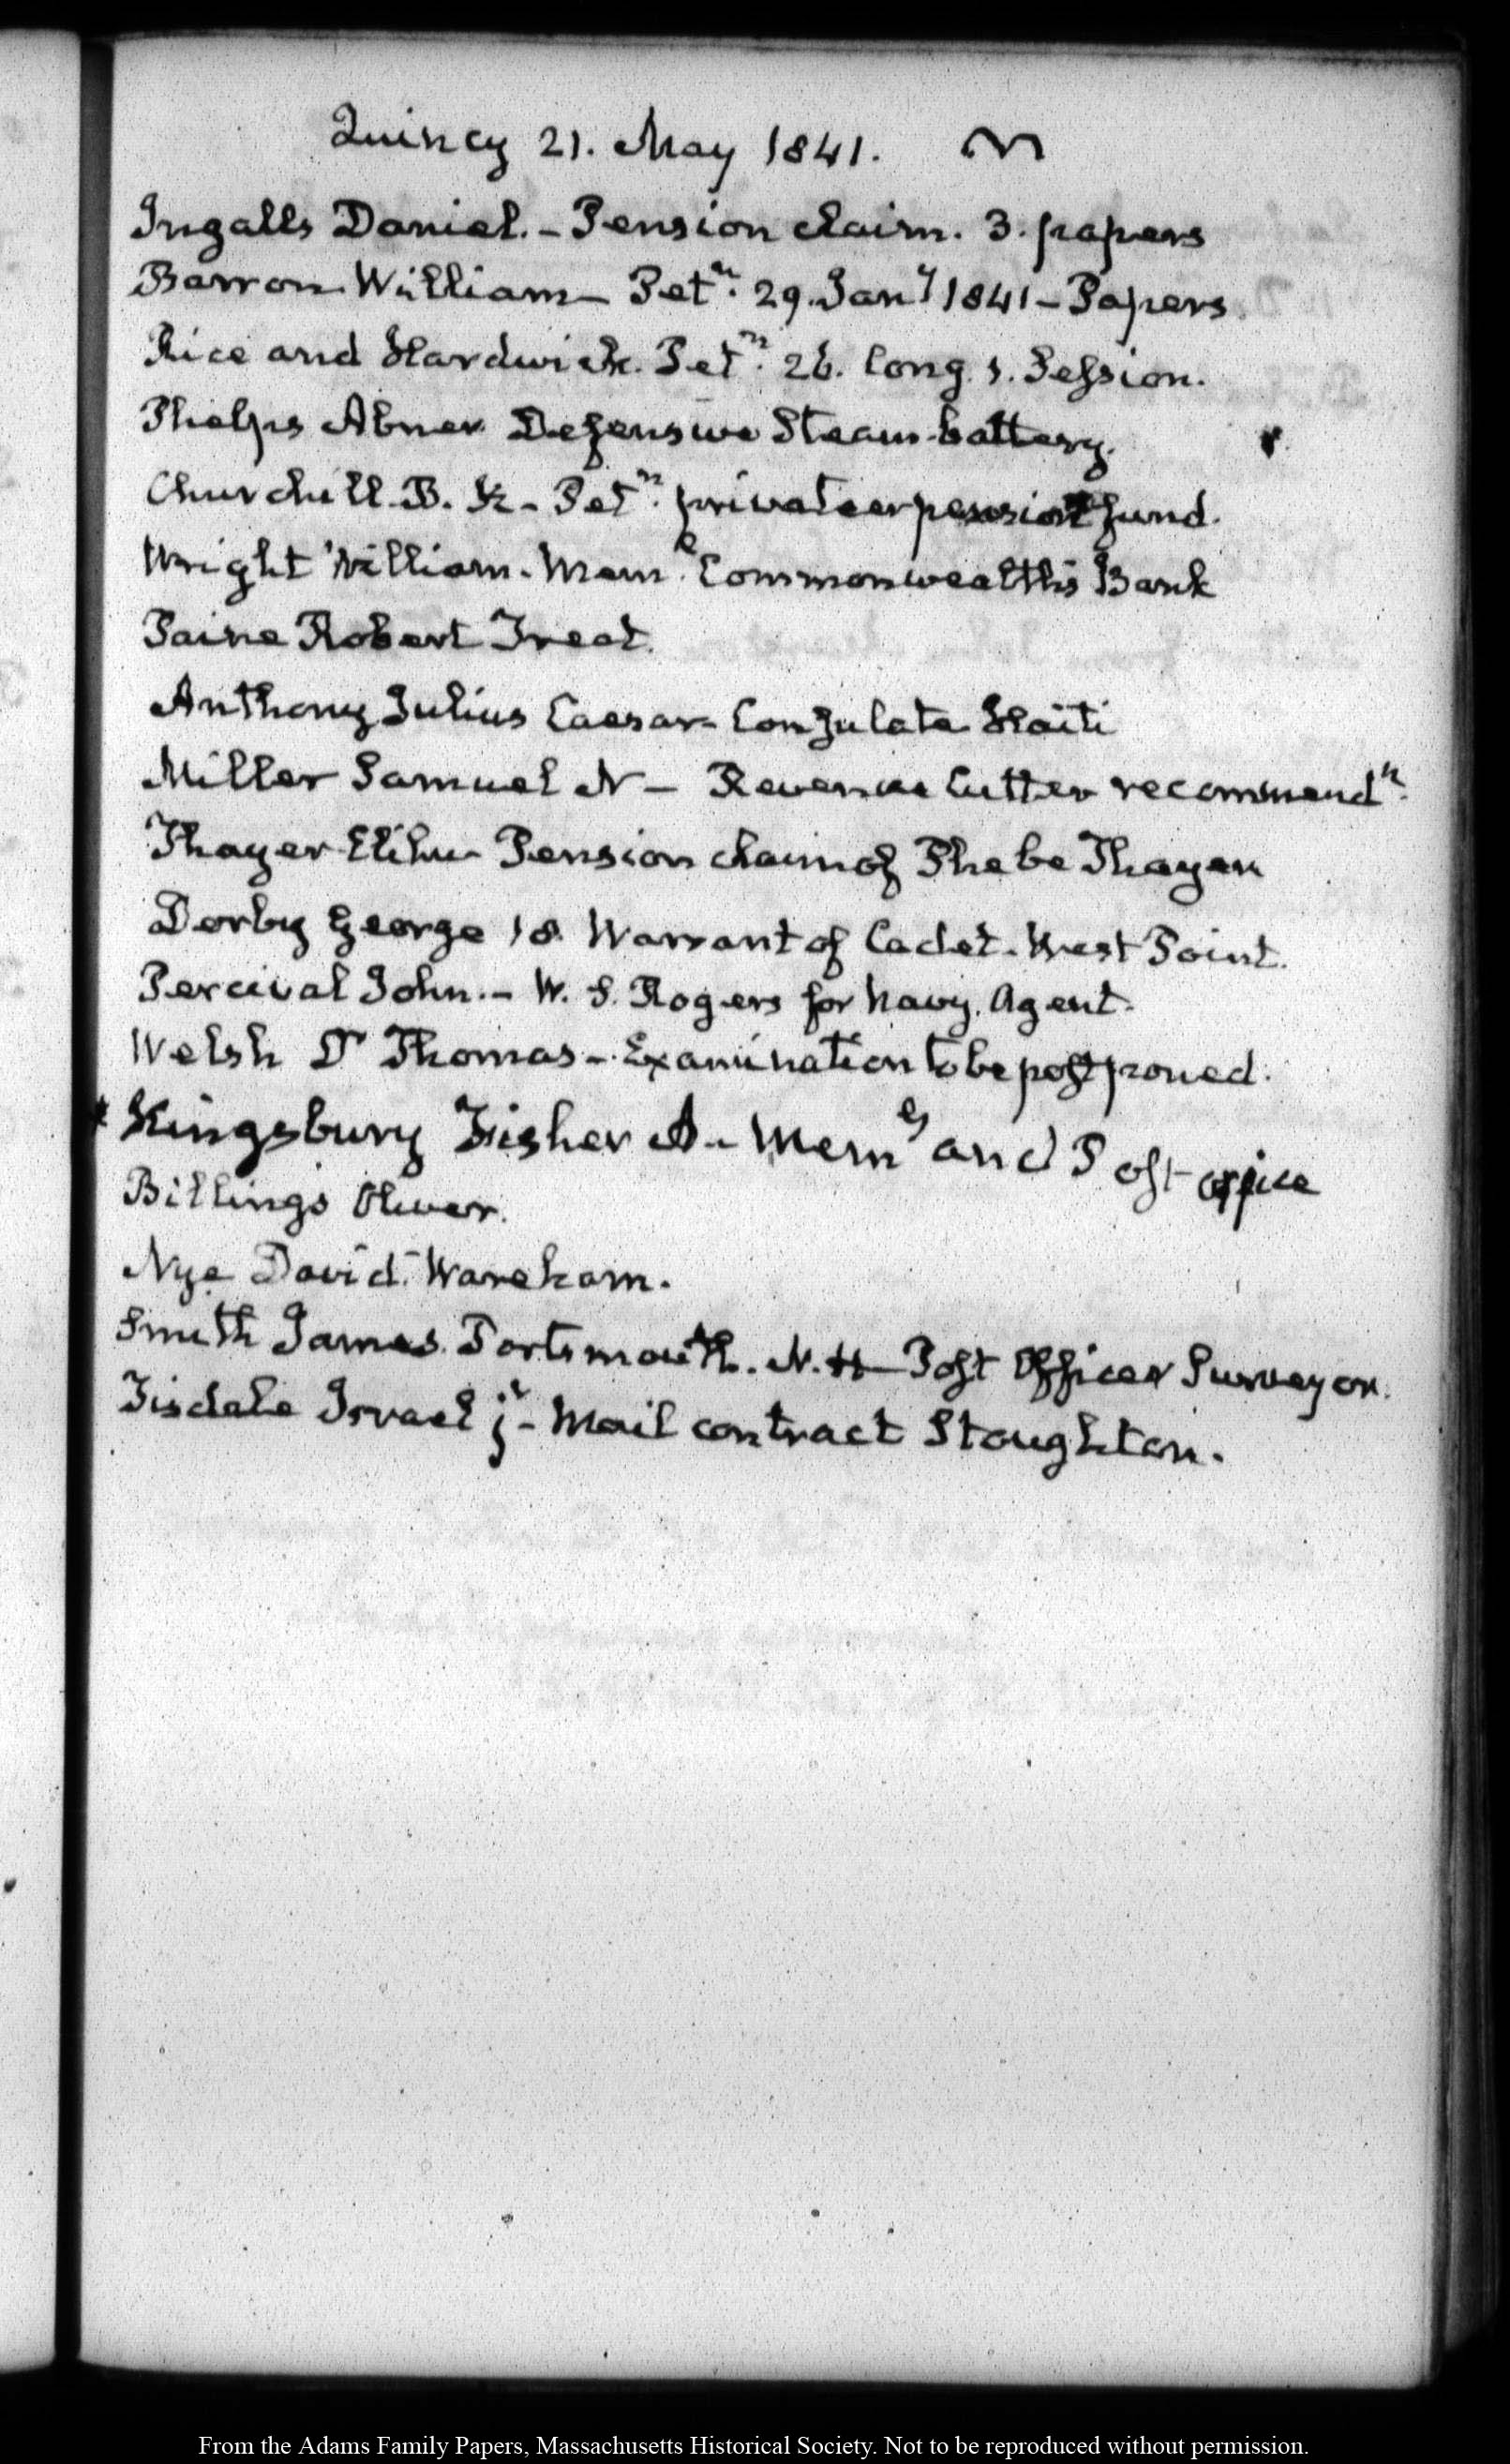 Quincy 21. May 1841.
Ingalls Daniel. – Pension claim. 3. papers
Barron William – Petn. 29. Jany 1841 – Papers.
Rice and Hardwick. Petn. 26. Cong. 1. Session.
Phelps Abner Defensive Steam-battery.
Churchill. B. K. – Petn. privateer pension fund.
Wright William. Meml. Commonwealth's Bank
Paine Robert Treat.
Anthony Julius Caesar – Consulate Haiti
Miller Samuel N – Revenue Cutter recommendn.
Thayer Elihu – Pension claim of Phebe Thayer
Derby George 18. Warrant of Cadet. West Point.
Percival John. – W. S. Rogers for Navy. Agent.
Welsh Dr Thomas – Examination to be postponed.
* Kingsbury Fisher A – and Post office
Billings Oliver.
Nye David. Wareham.
Smith James. Portsmouth. N. H – Post Officer Surveyor.
Tisdale Israel jr – Mail contract Stoughton.
From the Adams Family Papers, Massachusetts Historical Society. Not to be reproduced without permission.